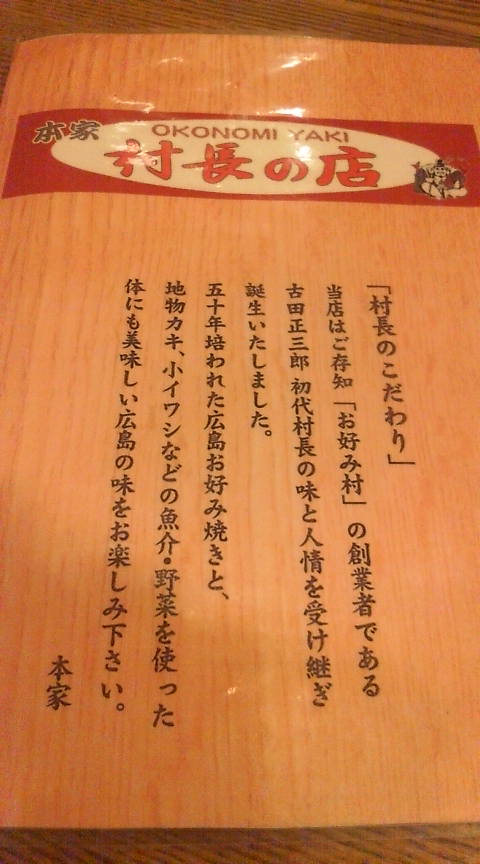 本家
OKONOMI YAKI
村長の店
「村長のこだわり」
当店はご存知「お好み村」の創業者である
古田正三郎 初代村長の味と人情を受け継ぎ
誕生いたしました。
五十年培われた広島お好み焼きと、
地物カキ、小イワシなどの魚介・野菜を使った
体にも美味しい広島の味をお楽しみ下さい。
本家